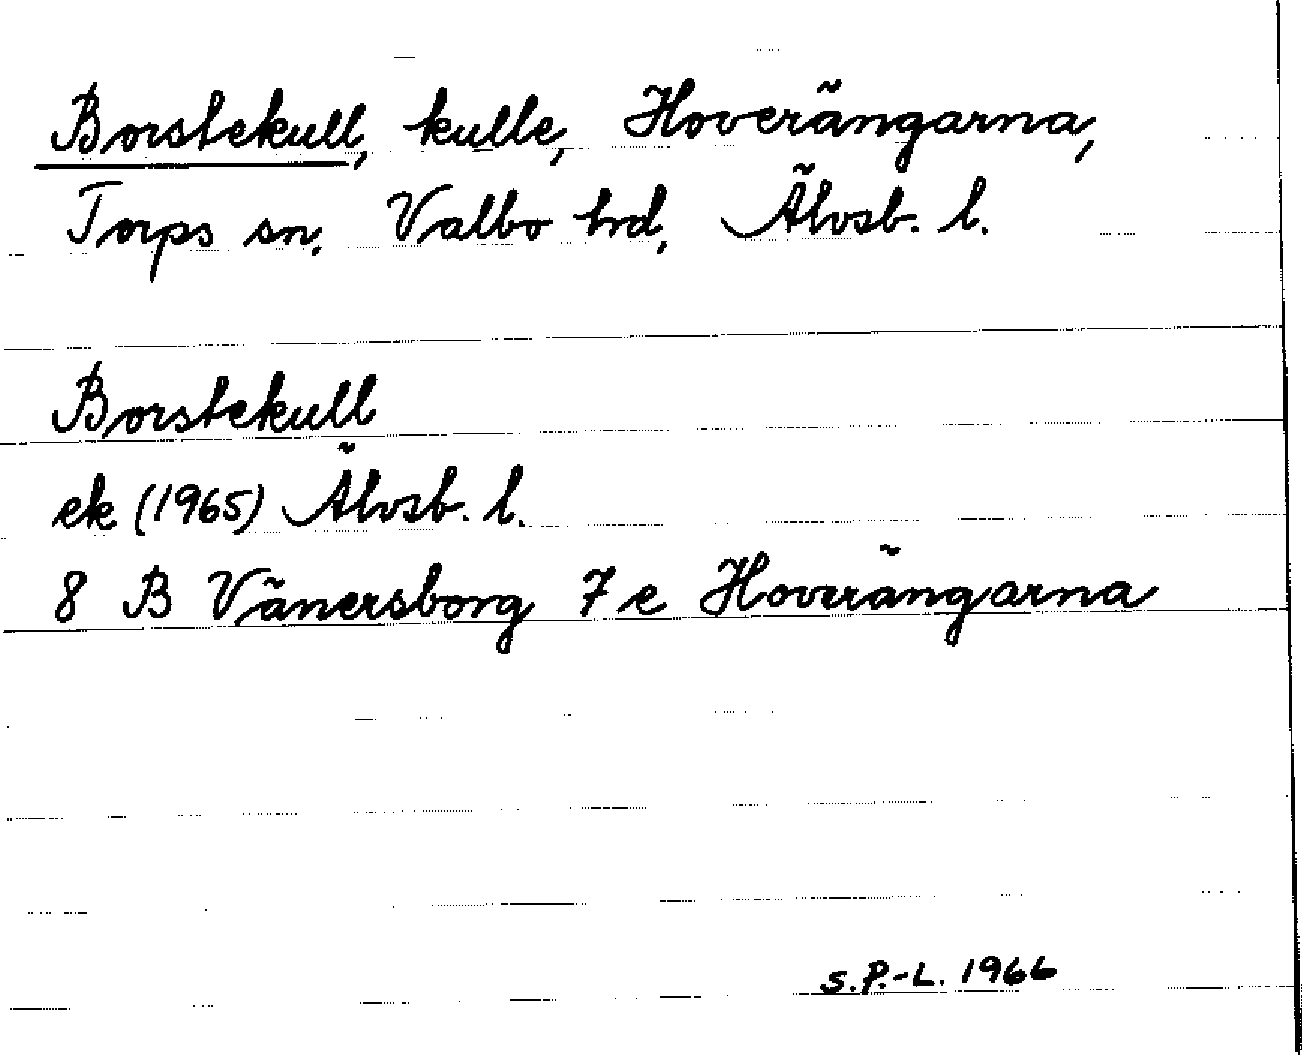 Borstekull, kulle, Hoverängarna,
Torps sn, Valbo hrd, Älvsb. l.
Borstekull
ek (1965) Älvsb. l.
8 B Vänersborg 7 e Hoverängarna
S.P.-L. 1966